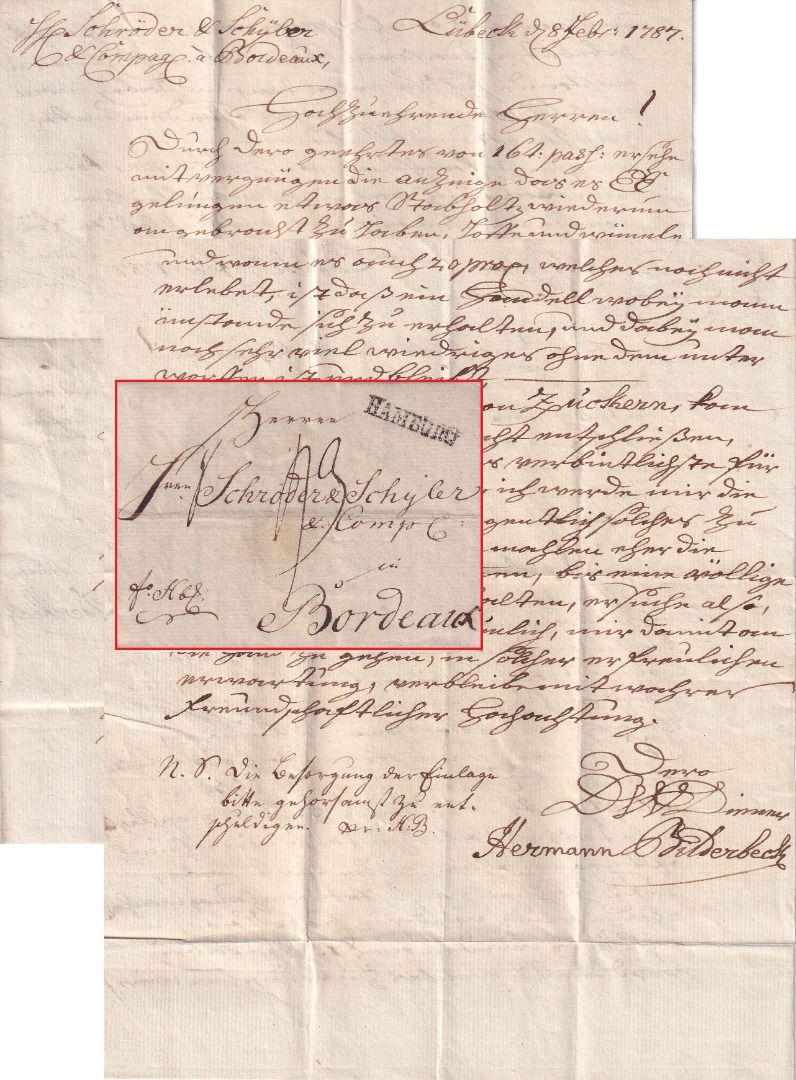 HH Schröder & Schÿler
& Compag. à Bordeaux,
Lübeck d 8 Febr: 1787.
Hochzuehrende Herren!
Durch dero geehrtes von 16t: pass: ersehe
mit vergnügen die anzeige das es
gelungen etwas Stabholtz wiederum
angebracht zu haben,
und wann es auch 20 welches noch nicht
erlebet, ist daß ein Handell wobeÿ mann
sich zu erhalten, und dabeÿ man
noch sehr viel wiedriges ohne dem unter
worffen ist und bleibt
von Zuckern, kom
cht entschließen,
verbintlichste für
ich werde mir die
gentlich solches zu
machten eher die
en, bis eine völlige
alten, ersuche also,
mir damit an
die Hand zu gehen, in solcher erfreulichen
erwartung, verbleibe mit wahrer
freundschaftlicher Hochachtung.
Dero
DW Diener
Hermann Bilderbeck
N. S. Die Besorgung der Einlage
bitte gehorsamst zu ent-
schuldigen. pr. H.B.
HAMBURG
Herren
Herren Schröder & Schÿler
& Comp
in
fo. Hbg.
Bordeaux